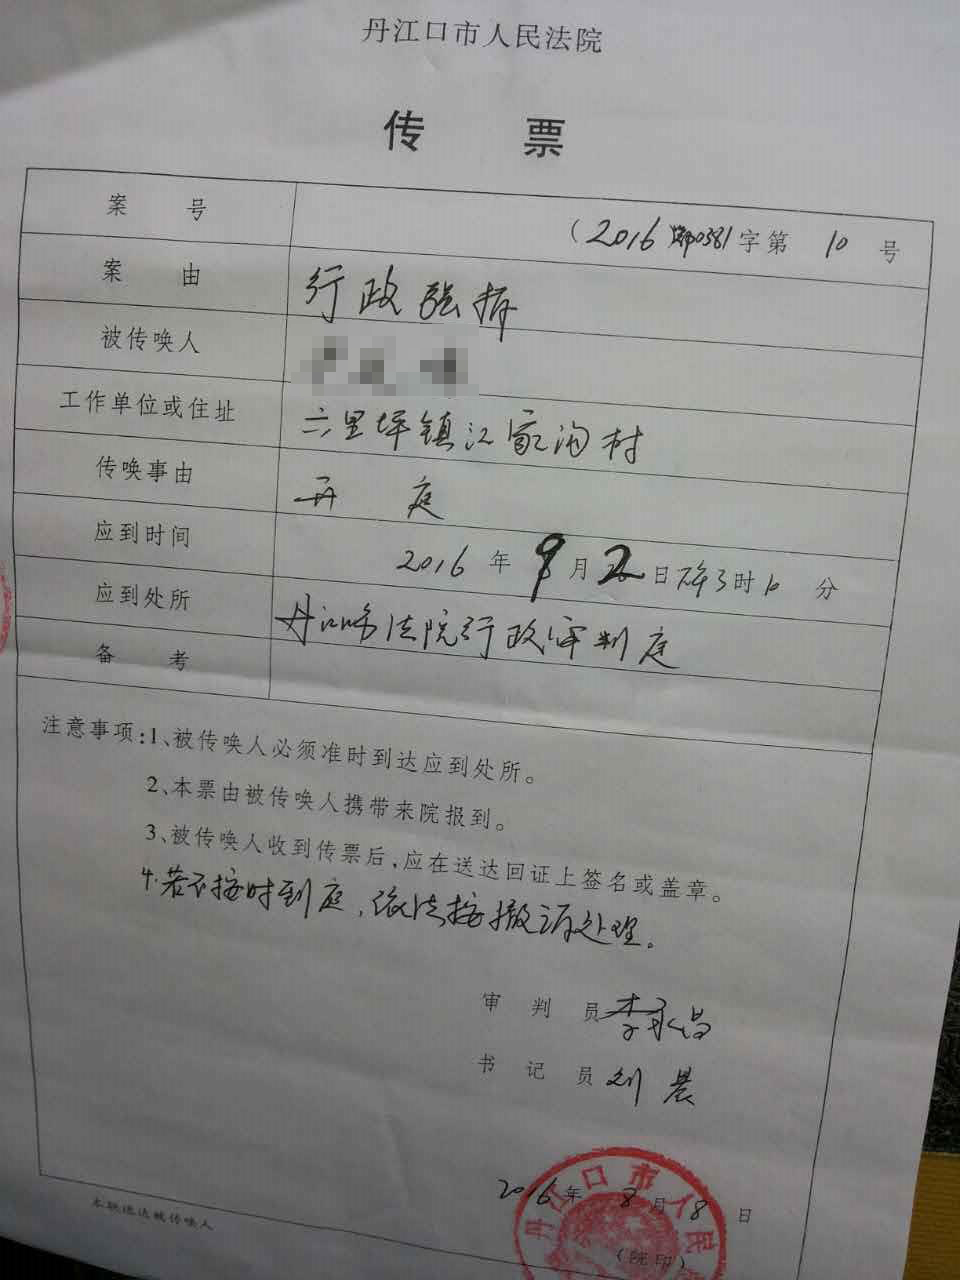 丹江口市人民法院
传 票
案 号 (2016鄂0381字第 10 号
案 由 行政强拆
被传唤人
工作单位或住址 六里坪镇江家沟村
传唤事由 开 庭
应到时间 2016 年 9 月 2 日 时 分
应到处所 丹江口市法院行政审判庭
备 考
注意事项:1、被传唤人必须准时到达应到处所。
2、本票由被传唤人携带来院报到。
3、被传唤人收到传票后,应在送达回证上签名或盖章。
4.若不按时到庭,依法按撤诉处理。
审 判 员 李永昌
书 记 员 刘晨
2016 年 8 月 8 日
(院印)
丹江口市人民
本联送达被传唤人